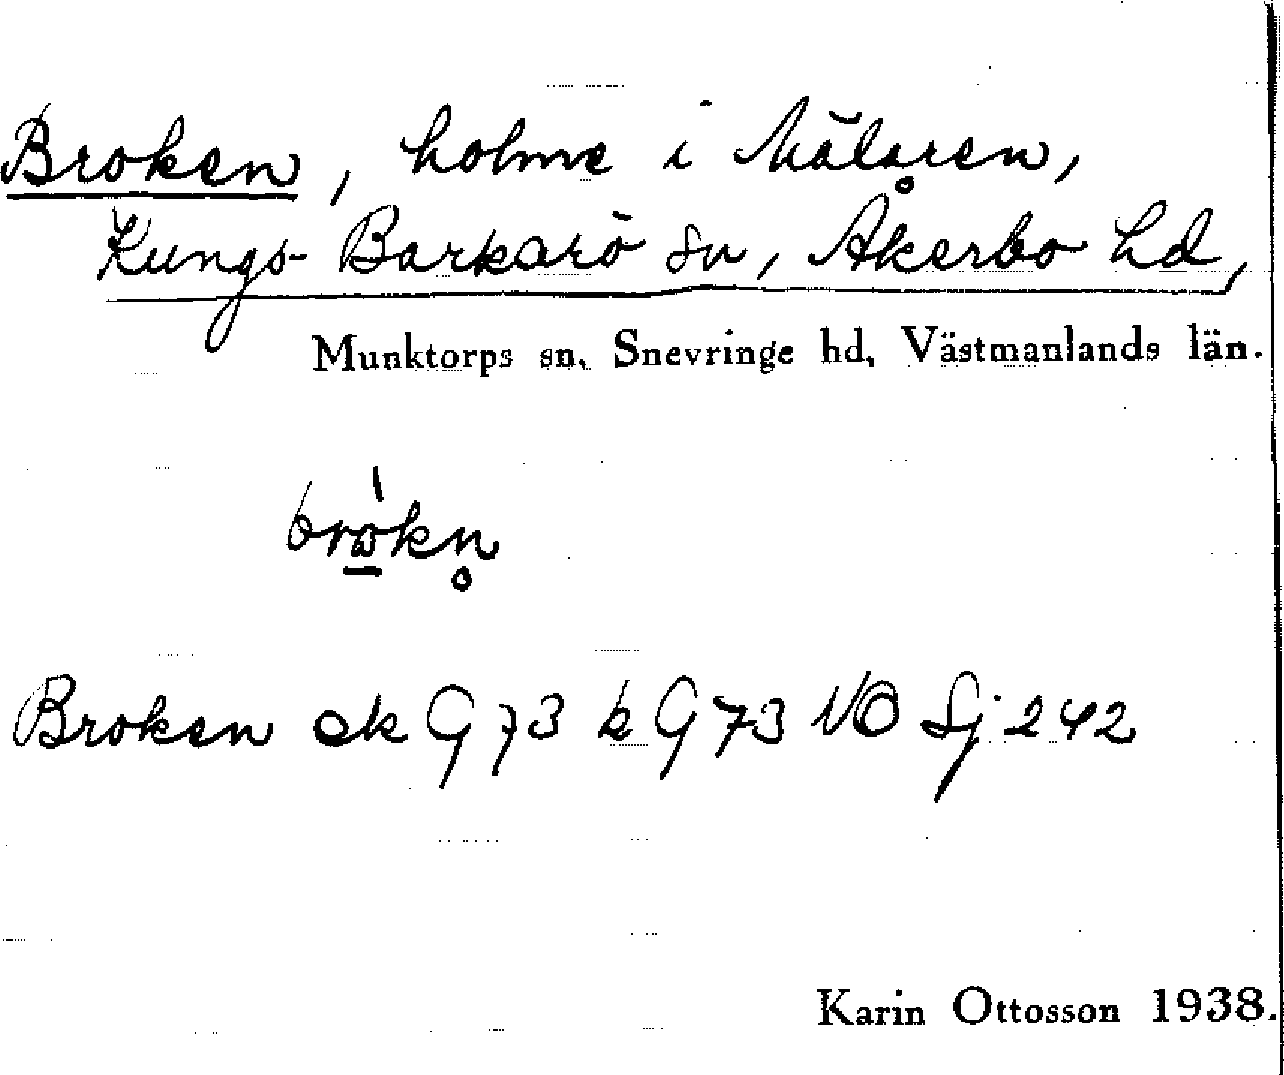 Broken, holme i Mälaren,
Kungs-Barkarö sn, Åkerbo hd,
Munktorps sn, Snevringe hd, Västmanlands län.
Broken ek G 73 k G 73 VO Sj 242
Karin Ottosson 1938.